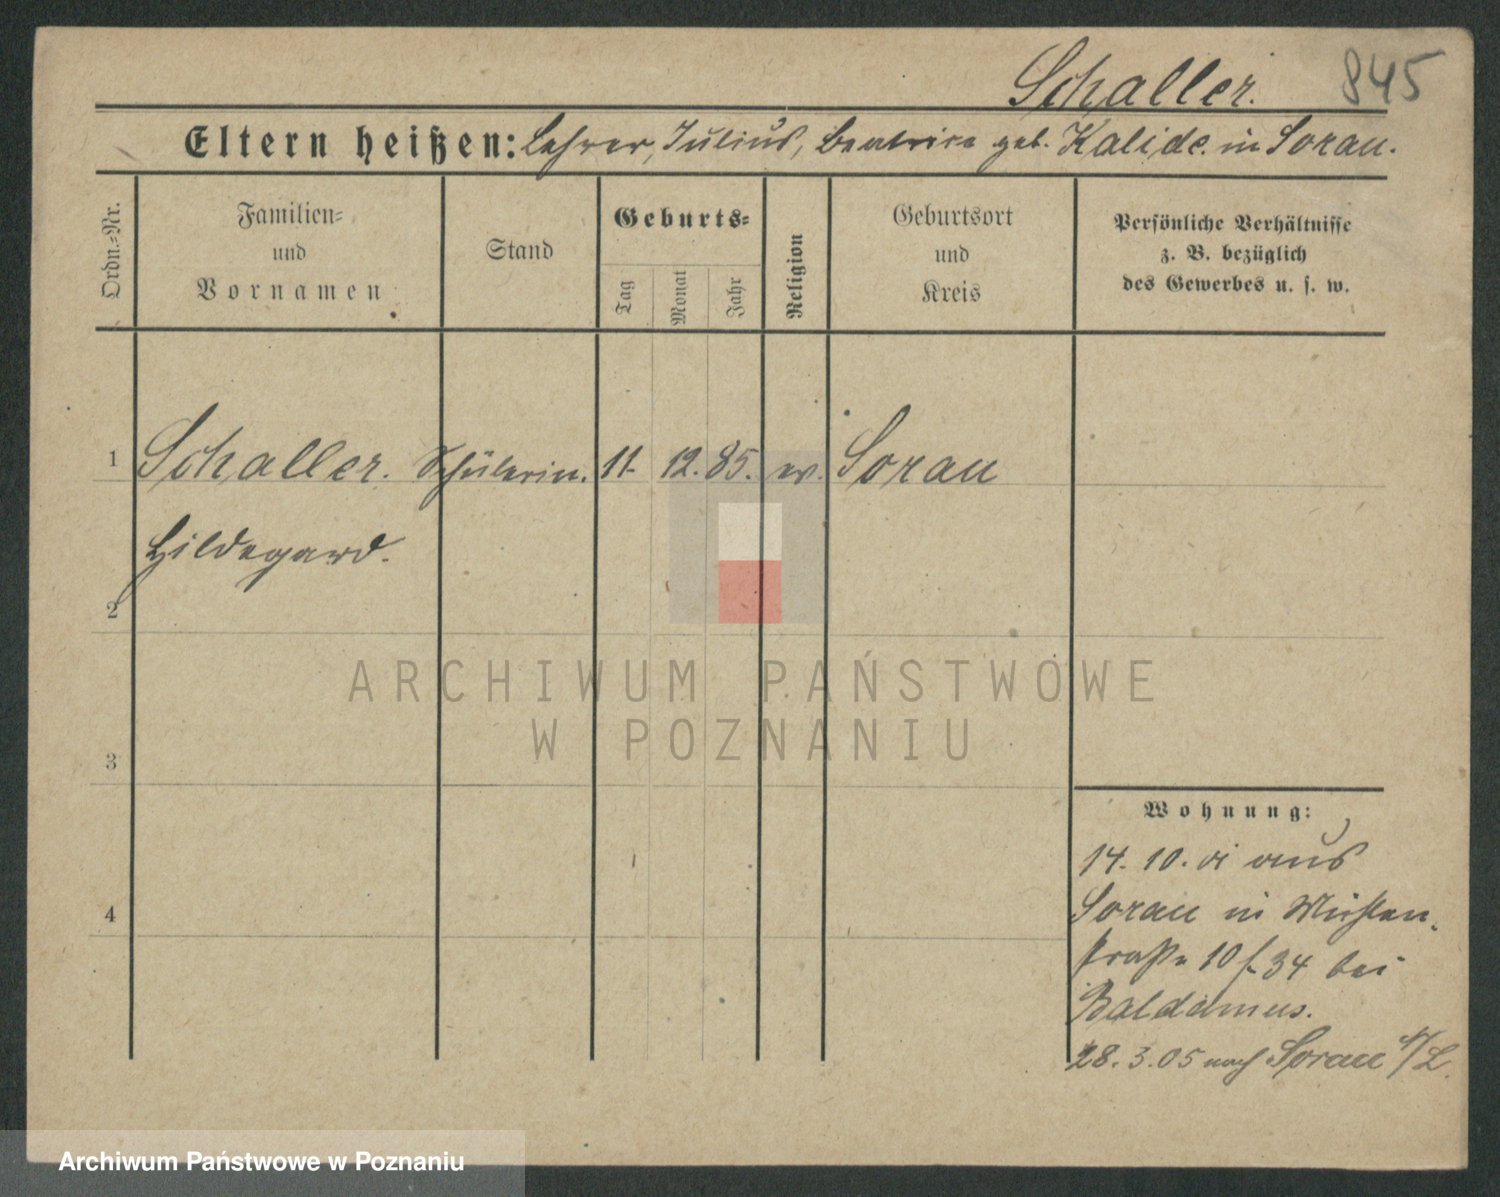 Schaller. 845
Eltern heißen: Lehrer, Julius, Beatrice geb. Kalide. in Sorau.
Ordn.=Nr.
Familien=
und
Vornamen
Stand
Geburts=
Tag
Monat
Jahr
Religion
Geburtsort
und
Kreis
Persönliche Verhältnisse
z. B. bezüglich
des Gewerbes u. s. w.
1 Schaller. Schülerin. 11. 12. 85. ev. Sorau
Hildegard.
2
3
4
Wohnung:
14. 10. 01 aus
Sorau in
straße 10 f. 34 bei
Baldamus.
28. 3. 05 nach Sorau N/L.
ARCHIWUM PAŃSTWOWE
W POZNANIU
Archiwum Państwowe w Poznaniu